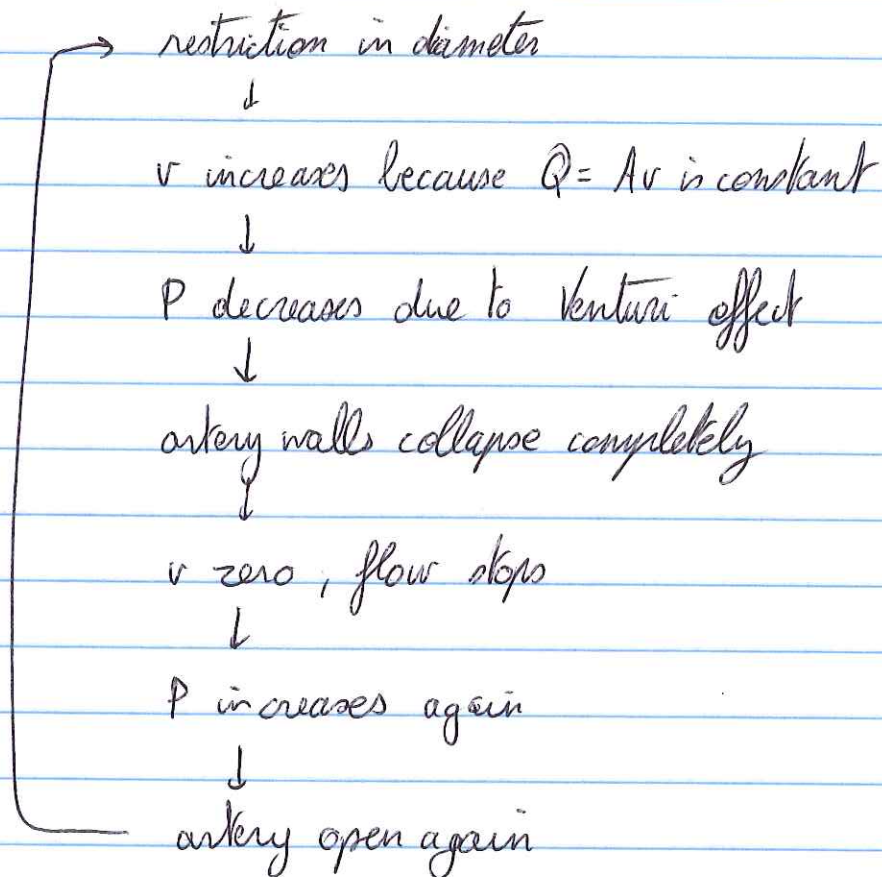 → restriction in diameter
↓
v increases because Q = Av is constant
↓
P decreases due to Venturi effect
↓
artery walls collapse completely
↓
v zero, flow stops
↓
P increases again
↓
artery open again